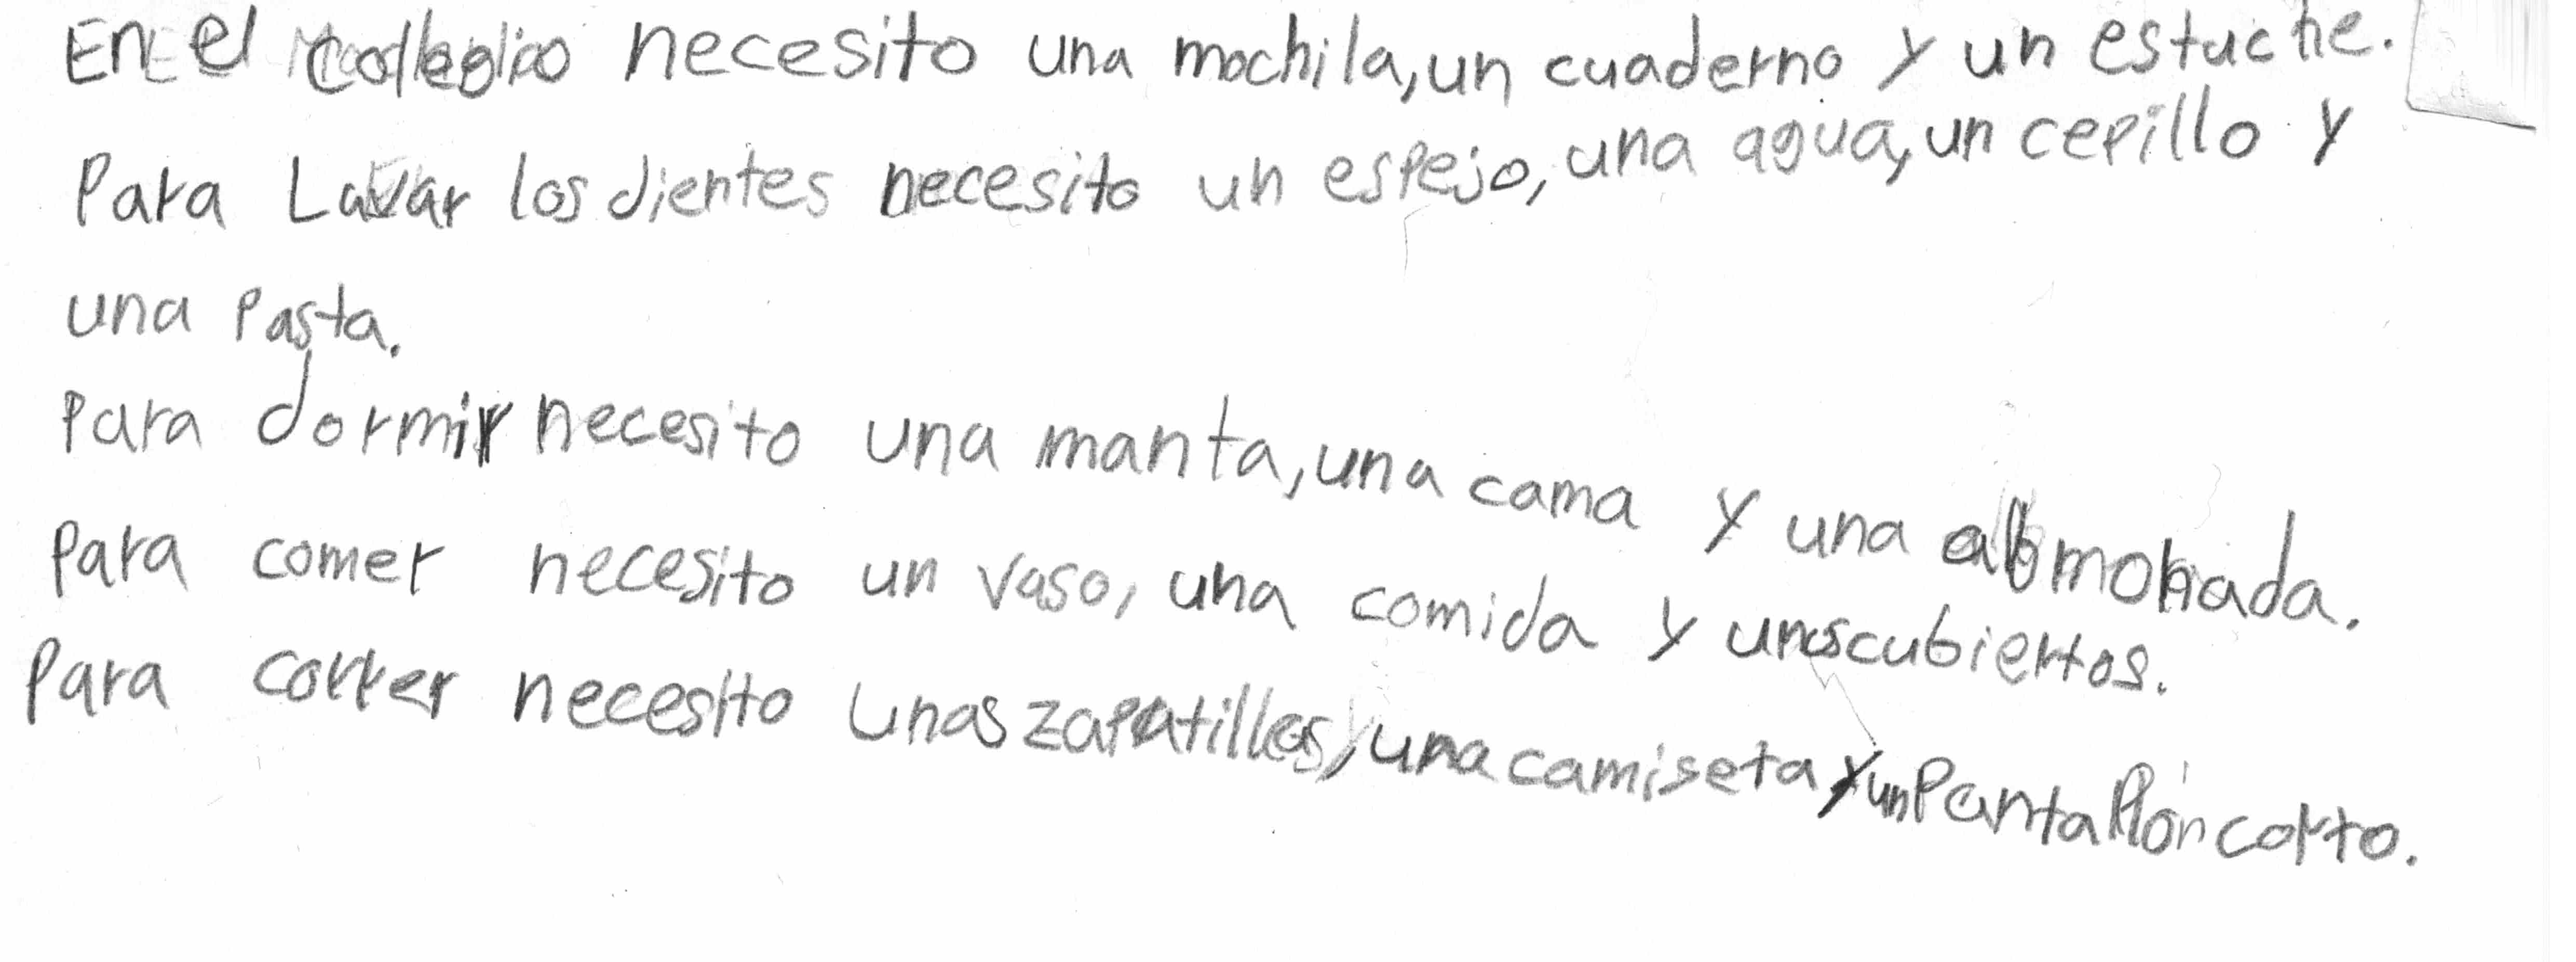 En el colegio necesito una mochila, un cuaderno y un estuche.
Para Lavar los dientes necesito un espejo, una agua, un cepillo y
una pasta.
Para dormir necesito una manta, una cama y una almohada.
Para comer necesito un vaso, una comida y unos cubiertos.
Para correr necesito unas zapatillas, una camiseta y un pantalón corto.